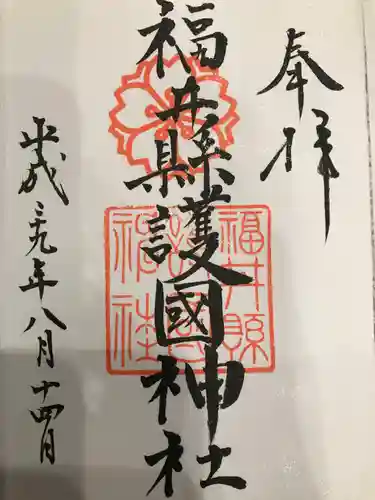 奉拝
福井縣護國神社
福井縣
護國
神社
平成二九年八月十四日